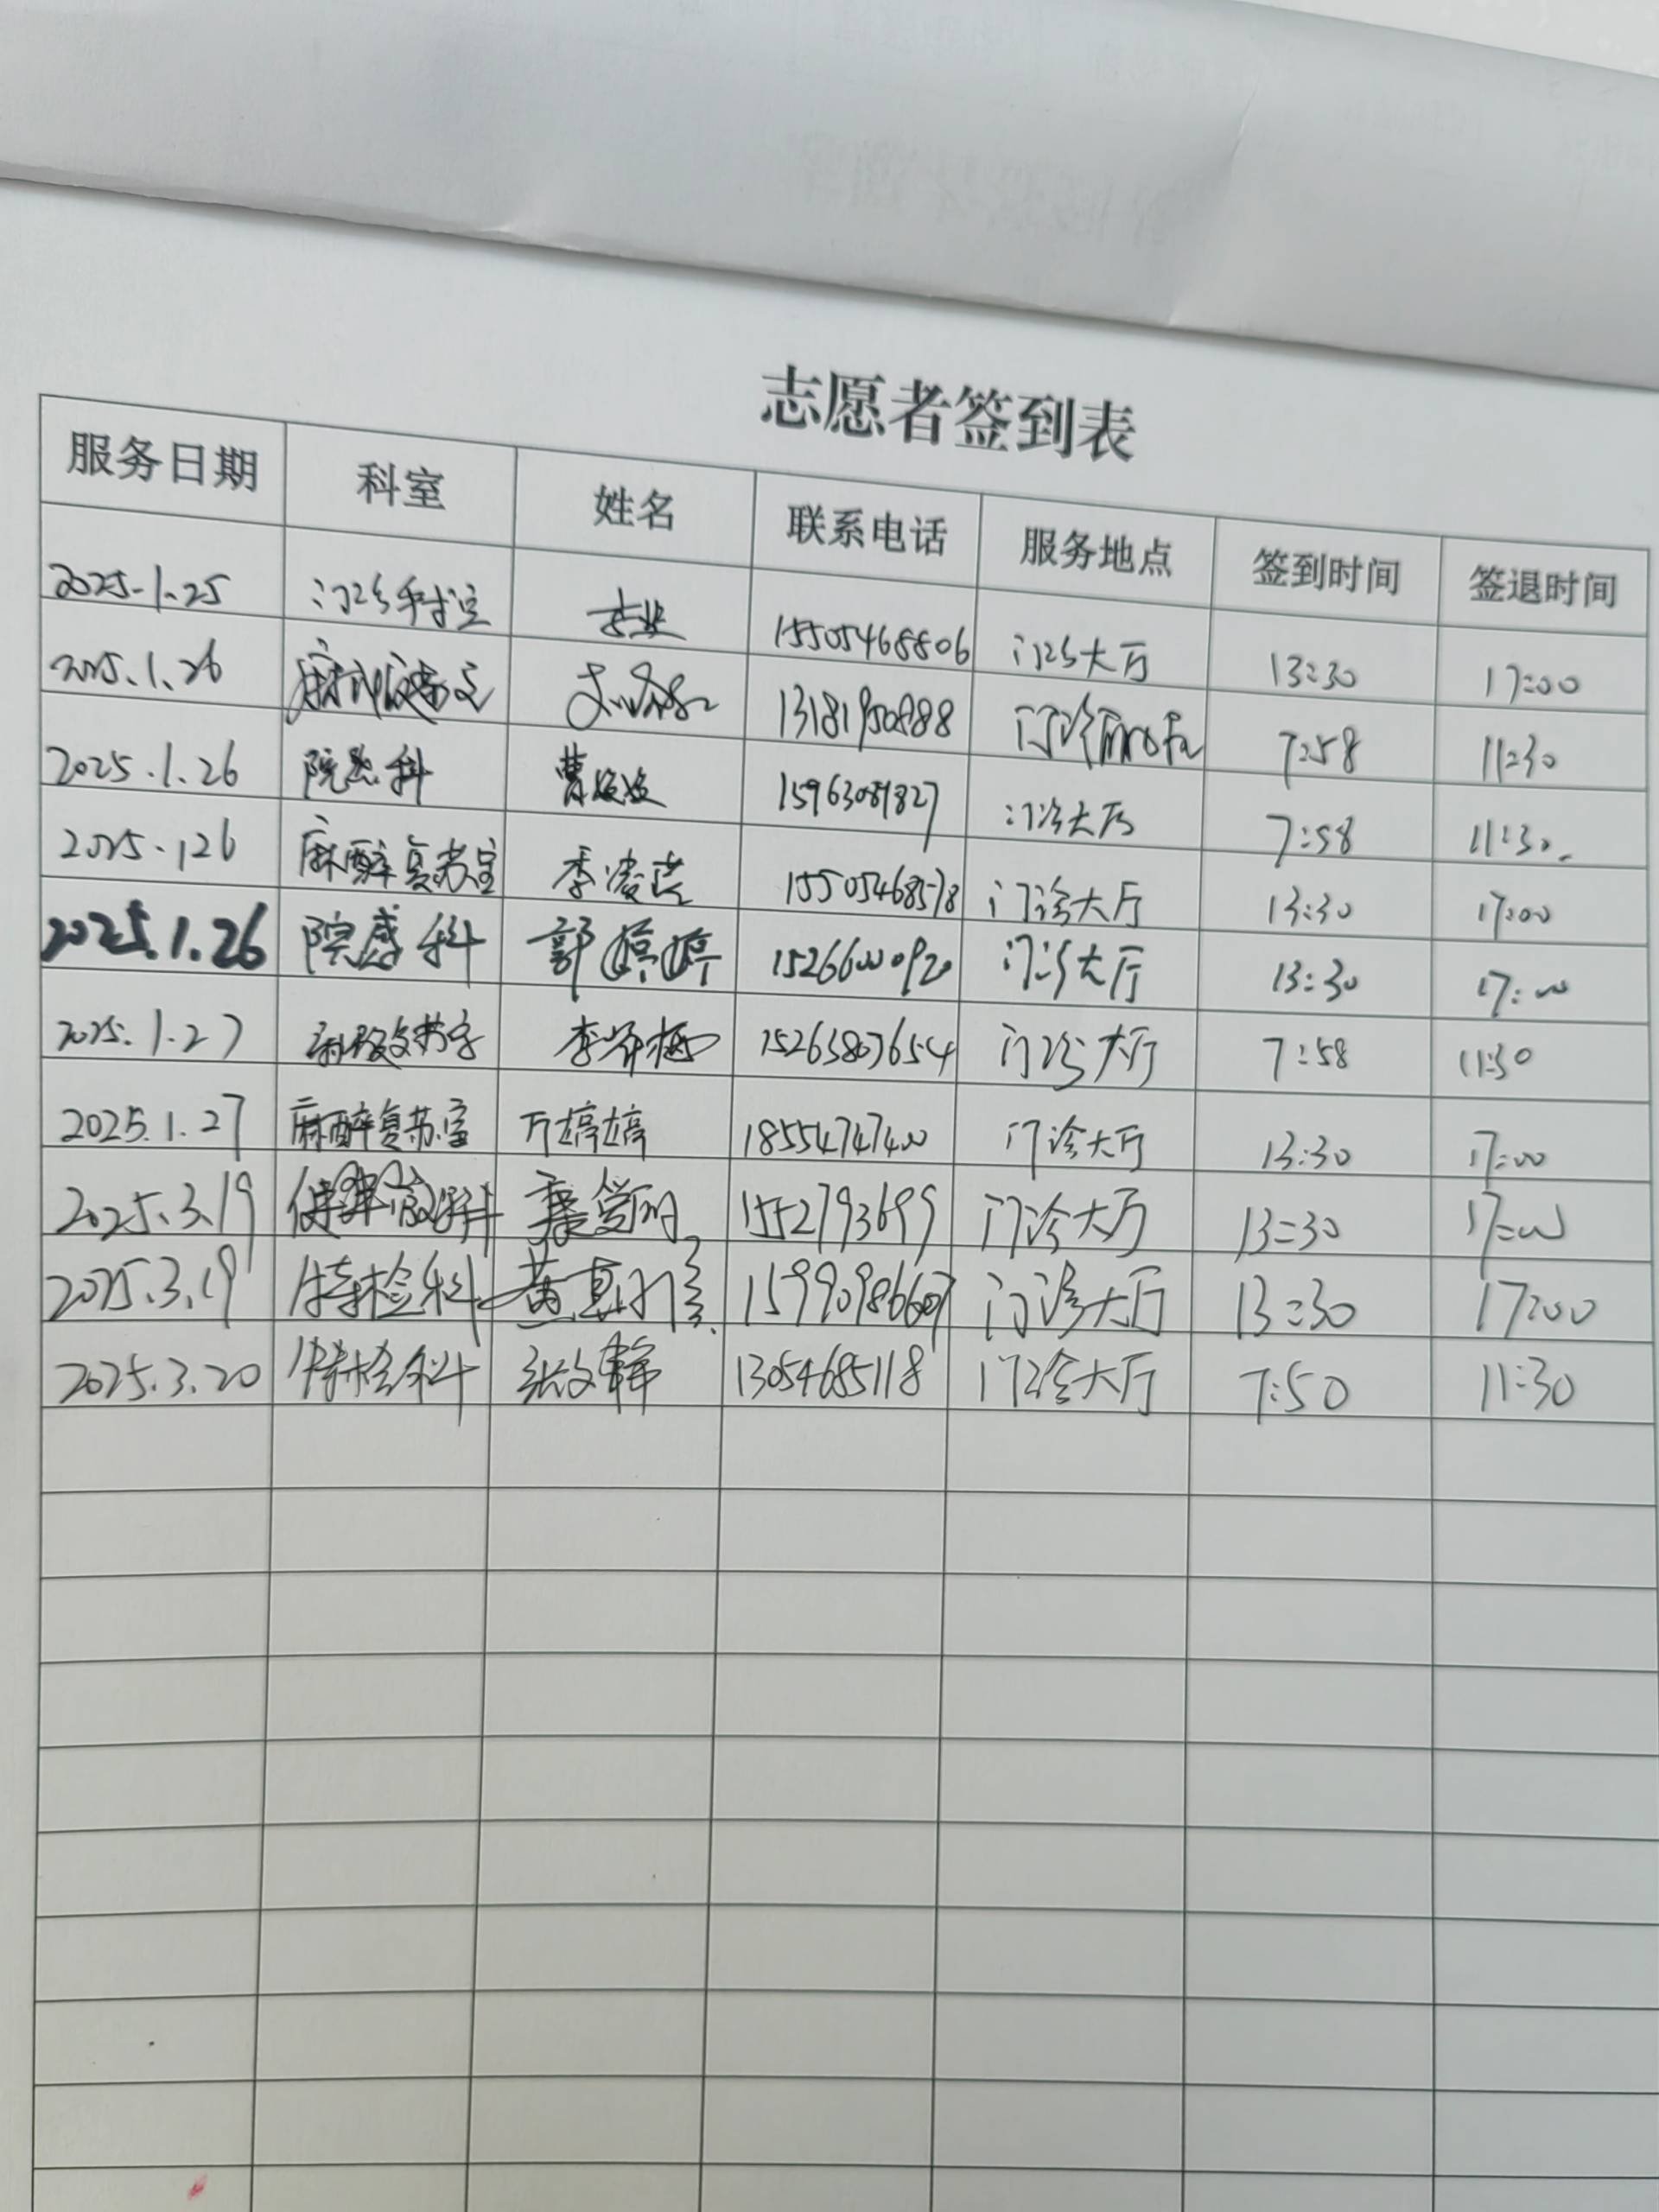 志愿者签到表
服务日期 科室 姓名 联系电话 服务地点 签到时间 签退时间
2025.1.25 门诊科室 15505468806 门诊大厅 13:30 17:00
2025.1.26 13181950888 门诊 7:58 11:30
2025.1.26 院感科 曹 15963081827 门诊大厅 7:58 11:30
2025.126 麻醉复苏室 季凌 15505468578 门诊大厅 13:30 17:00
2025.1.26 院感科 郭婷婷 15266000920 门诊大厅 13:30 17:00
2025.1.27 李 梅 15263807654 门诊大厅 7:58 11:30
2025.1.27 麻醉复苏室 万婷婷 18554747400 门诊大厅 13:30 17:00
2025.3.19 1552793699 门诊大厅 13:30 17:00
2025.3.19 特检科 黄 门诊大厅 13:30 17:00
2025.3.20 特检科 张文 13054685118 门诊大厅 7:50 11:30